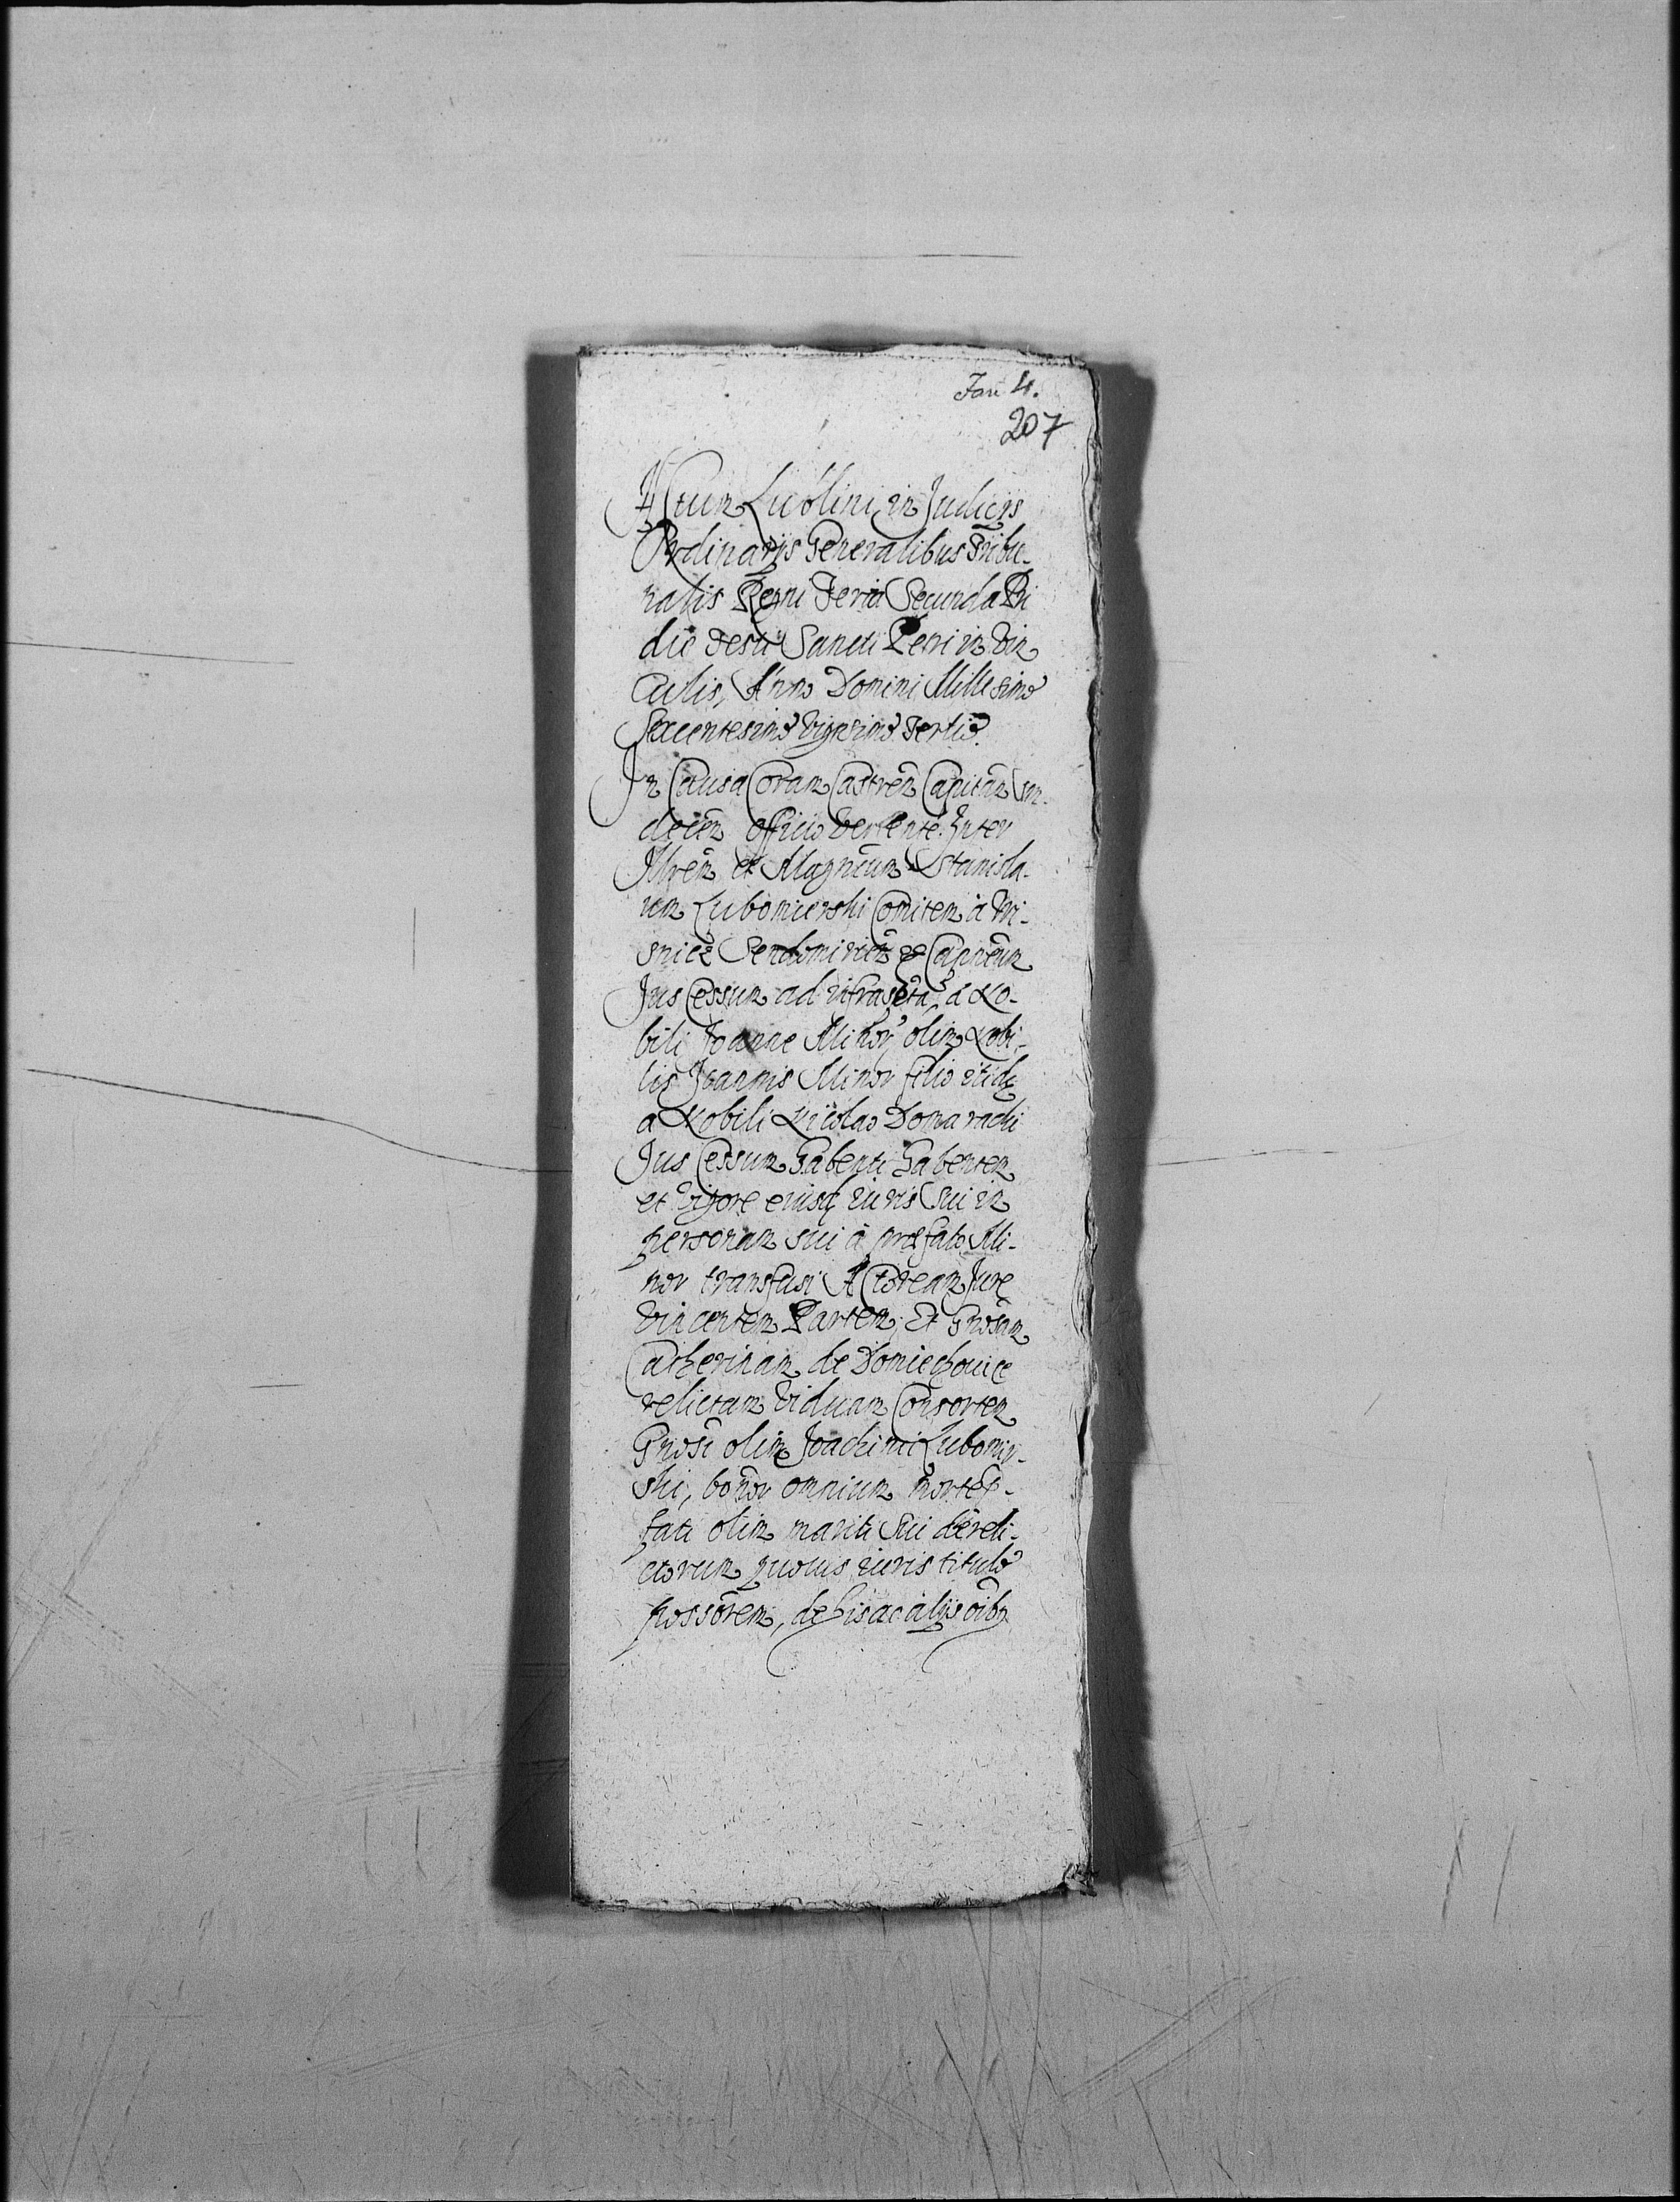 Fasc 4.
207
Actum Lublini in Judicijs
Ordinarijs Generalibus Tribu-
nalis Regni Feria Secunda Pri
die Festi Sancti Petri in Vin
culis, Anno Domini Millesimo
Sexcentesimo Vigesimo Tertio.
In Causa Coram Castren Capitan San-
decen officio Vertente. Inter
Illrem et Magncum Stanisla-
um Lubomierski Comitem à Wi-
snicz Sendomirien & Capneum
Jus Cessum ad infrascta, à No-
bili Joanne Minor olim Nobi-
lis Joannis Minor filio itidē
a Nobili Nicolao Domaracki
Jus Cessum habenti habentem
et vigore eiusdē iuris Sui in
personam sui à præfato Mi-
nor transfusi Actoream Jure
Vincentem Partem; Et Gnosam
Catherinam de Domiechowice
relictam Viduam Consortem
Gnosi olim Joachimi Lubomir-
ski, bonor omnium morte p-
fati olim mariti Sui dereli-
ctorum quovis iuris titulo
possorem, de his ac alijs oibq